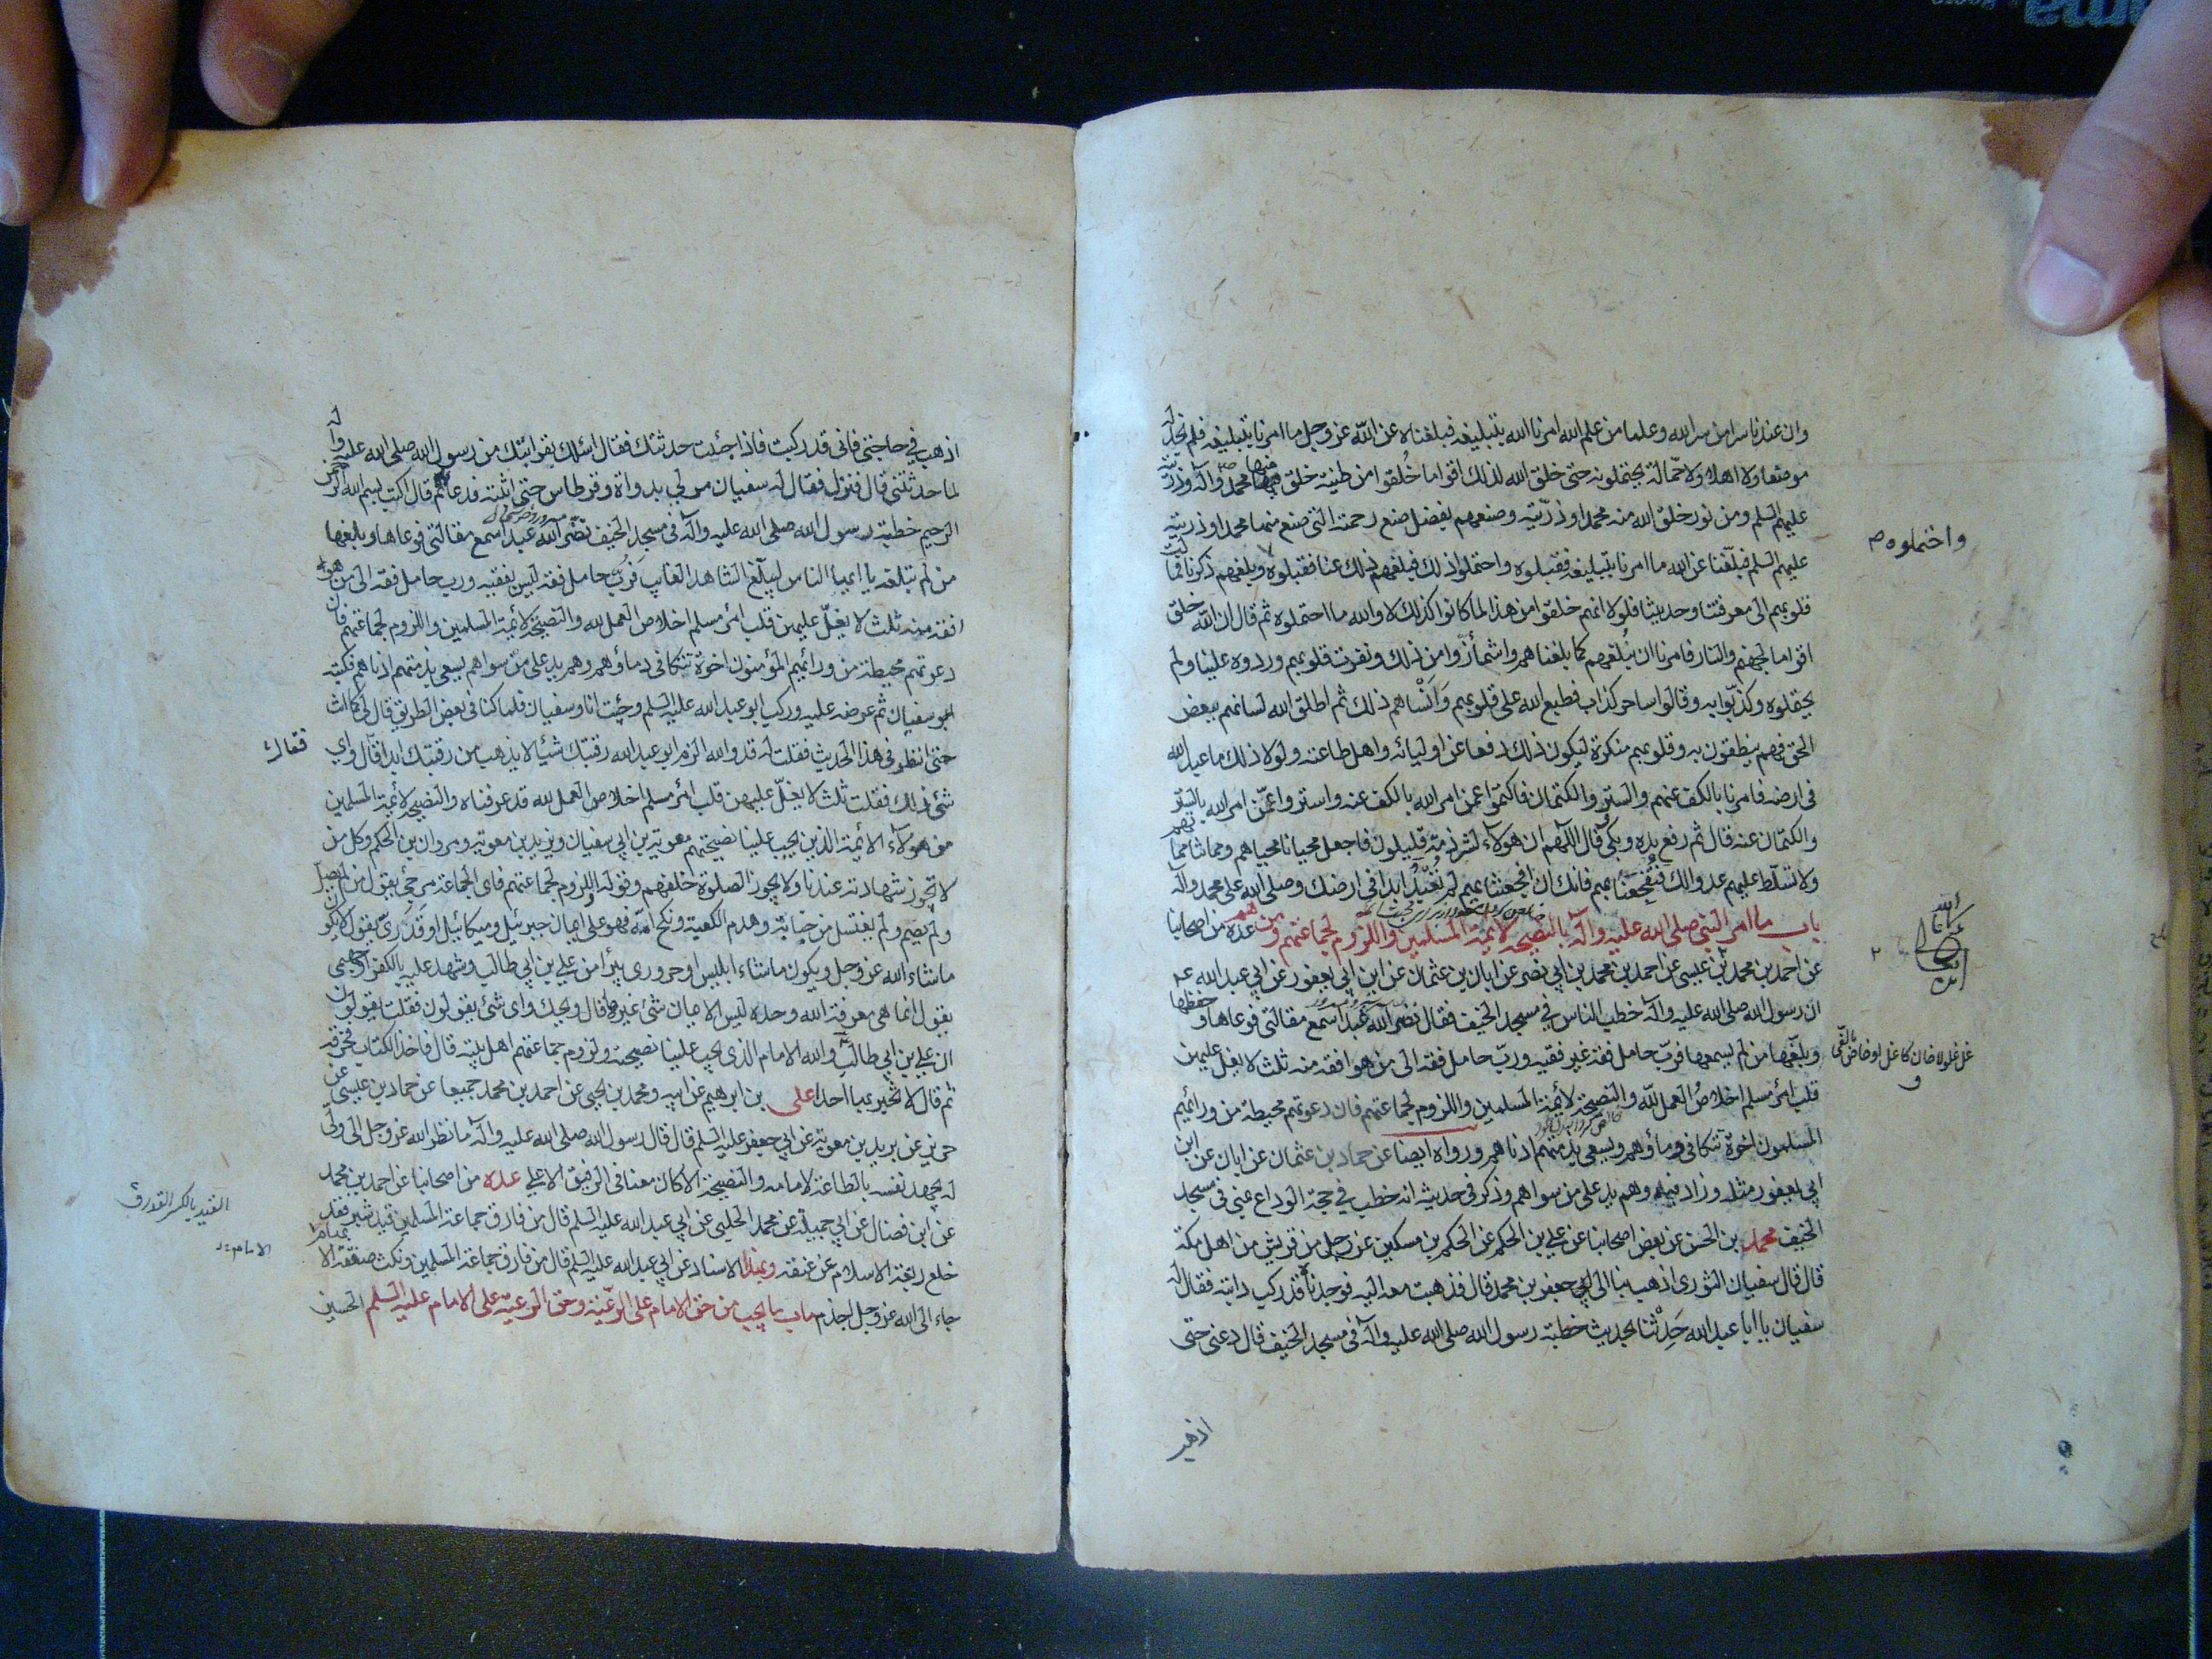 وان عندنا سرا من سر الله وعلما من علم الله امرنا الله بتبليغه فبلغناه عن الله عز وجل ما امرنا بتبليغه فلم نجد له
موضعا ولا اهلا ولا حمالة يحتملونه حتى خلق الله لذلك اقواما خُلقوا من طينة خلق منها محمد وآله وذريته
عليهم السلم ومن نور خلق الله منه محمدا وذريته وصنعهم بفضل صنع رحمته التى صنع منها محمدا وذريته
عليهم السلم فبلّغنا عن الله ما امرنا بتبليغه فقبلوه واحتملوا ذلك فبلغهم ذلك عنا فقبلوه وبلغهم ذكرنا فمالت
واحتملوه ص
قلوبهم الى معرفتنا وحديثنا فلولا انهم خلقوا من هذا لما كانوا كذلك لا والله ما احتملوه ثم قال ان الله خلق
اقواما لجهنم والنار فامرنا ان نُبلغهم كما بلغناهم واشمأزّوا من ذلك ونفرت قلوبهم وردوه علينا ولم
يحتملوه وكذّبوا به وقالوا ساحر كذاب فطبع الله على قلوبهم وَاَنْساهم ذلك ثم اطلق الله لسانهم ببعض
الحق فهم ينطقون به وقلوبهم منكرة ليكون ذلك دفعا عن اوليائه واهل طاعته ولولا ذلك ما عبد الله
فى ارضه فامرنا بالكف عنهم والستر والكتمان فاكتموا عمن امر الله بالكف عنه واستروا عمّن امر الله بالستر
والكتمان عنه قال ثم رفع يده وبكى وقال اللهم ان هولاء لشرذمة قليلون فاجعل محيانا محياهم ومماتنا مماتهم
ولا تسلّط عليهم عدوا لك فتُفجِعَنا بهم فانك ان افجعتنا بهم لم تُعْبَدْ ابدا فى ارضك وصلى الله على محمد وآله
باب ما امر النبى صلى الله عليه وآله بالنصيحة لائمة المسلمين واللزوم لجماعتهم ومن هم عدة من اصحابنا
عن احمد بن محمد بن عيسى عن احمد بن محمد بن ابى نصر عن ابان بن عثمان عن ابن ابى يعفور عن ابى عبد الله عم
ان رسول الله صلى الله عليه وآله خطب الناس فى مسجد الخيف فقال نضر الله عبدا سمع مقالتى فوعاها وحفظها
وبلّغها من لم يسمعها فربّ حامل فقه غير فقيه وربّ حامل فقه الى من هو افقه منه ثلث لا يغل عليهن
غل غلولا خان كاغل او خاض بالفى
قلب امرئ مسلم اخلاصُ العمل للّه والنصيحة لائمة المسلمين واللزوم لجماعتهم فان دعوتهم محيطة من ورائهم
المسلمون اخوة تتكافى دماؤهم ويسعى بذمتهم ادناهم ورواه ايضا عن حماد بن عثمان عن ابان عن ابن
ابى يعفور مثله وزاد فيه وهم يد على من سواهم وذكر فى حديثه انه خطب فى حجة الوداع بمنى فى مسجد
الخيف محمد بن الحسن عن بعض اصحابنا عن على بن الحكم عن الحكم بن مسكين عن رجل من قريش من اهل مكة
قال قال سفيان الثورى اذهب بنا الى جعفر بن محمد قال فذهبت معه اليه فوجدناه قد ركب دابته فقال له
سفيان يا ابا عبد الله حَدِثْنا بحديث خطبة رسول الله صلى الله عليه وآله فى مسجد الخيف قال دعنى حتى
اذهب
اذهب فى حاجتى فانى قد ركبت فاذا جئت حدثتك فقال اسئلك بقرابتك من رسول الله صلى الله عليه وآله
لما حدثتنى قال فنزل فقال له سفيان مر لى بدواة وقرطاس حتى اثبته فدعا به ثم قال اكتب بسم الله الرحمن
الرحيم خطبة رسول الله صلى الله عليه وآله فى مسجد الخيف نضّر الله عبدا سمع مقالتى فوعاها وبلغها
من لم تبلغه يا ايها الناس ليبلّغ الشاهد الغايب فرُبّ حامل فقه ليس بفقيه ورب حامل فقه الى من هو
افقه منه ثلث لا يغلّ عليهن قلب امرئ مسلم اخلاص العمل لله والنصيحة لائمة المسلمين واللزوم لجماعتهم فان
دعوتهم محيطة من ورائهم المؤمنون اخوة تتكافى دماؤهم وهم يد على من سواهم يسعى بذمتهم ادناهم فكتبه
سفيان ثم عرضه عليه وركب ابو عبد الله عليه السلم وجئت انا وسفيان فلما كنا فى بعض الطريق قال لى كما انت
حتى انظر فى هذا الحديث فقلت له قد والله الزم ابو عبد الله رقبتك شيئا لا يذهب من رقبتك ابدا قال واى
فقال
شئ ذلك فقلت ثلث لا يغلّ عليهن قلب امرئ مسلم اخلاص العمل لله قد عرفناه والنصيحة لائمة المسلمين
من هولاء الائمة الذين يجب علينا نصيحتهم معوية بن ابى سفيان ويزيد بن معوية ومروان بن الحكم وكل من
لا تجوز شهادته عندنا ولا يجوز الصلوة خلفهم وقوله واللزوم لجماعتهم فاى الجماعة مرجئى يقول من لم يصل
ولم يصم ولم يغتسل من جنابة وهدم الكعبة ونكح امّه فهو على ايمان جبرئيل وميكائيل او قَدَرىّ يقول لا يكون
ماشاء الله عز وجل ويكون ماشاء ابليس او حرورى يبرأ من على بن ابى طالب وشهد عليه بالكفر او جهمى
يقول انما هى معرفة الله وحده ليس الايمان شئ غيرها قال ويحك واى شئ يقولون فقلت يقولون
ان على بن ابى طالب والله الامام الذى يجب علينا نصيحته ولزوم جماعتهم اهل بيته قال فاخذ الكتاب فخرقه
ثم قال لا تخبر بها احدا على بن ابرهيم عن ابيه ومحمد بن يحيى عن احمد بن محمد جميعا عن حماد بن عيسى عن
حريز عن بريد بن معوية عن ابى جعفر عليه السلم قال قال رسول الله صلى الله عليه وآله ما نظر الله عز وجل الى ولى
له يجهد نفسه بالطاعة لامامه والنصيحة الا كان معنا فى الرفيق الاعلى عدة من اصحابنا عن احمد بن محمد
عن ابن فضال عن ابى جميلة عن محمد الحلبى عن ابى عبد الله عليه السلم قال من فارق جماعة المسلمين قيد شبر فقد
القيد بالكسر القدر ق
خلع ربقة الاسلام عن عنقه وبهذا الاسناد عن ابى عبد الله عليه السلم قال من فارق جماعة المسلمين ونكث صفقة الا
جاء الى الله عز وجل اجذم باب ما يجب من حق الامام على الرعية وحق الرعية على الامام عليه السلم الحسين